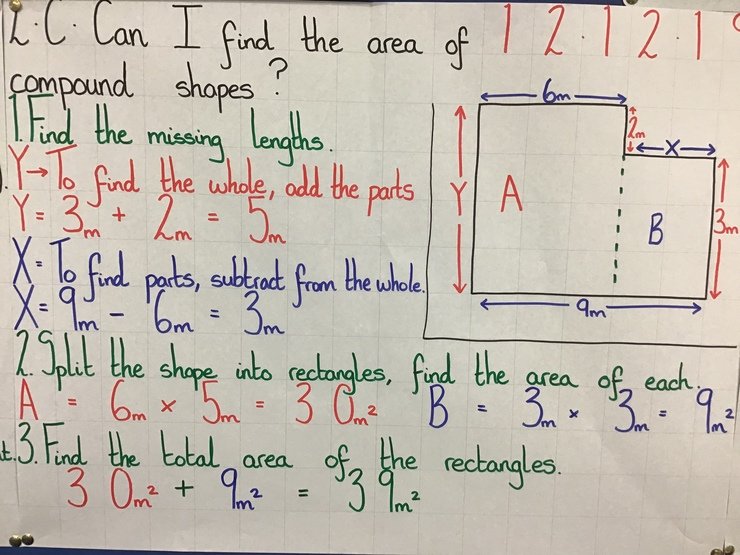 L.C. Can I find the area of 12.12.19
compound shapes?
1. Find the missing lengths.
Y→To find the whole, add the parts
Y = 3m + 2m = 5m
X = To find parts, subtract from the whole.
X = 9m - 6m = 3m
6m
2m
X
Y
A
B
3m
9m
2. Split the shape into rectangles, find the area of each.
A = 6m × 5m = 30m² B = 3m × 3m = 9m²
3. Find the total area of the rectangles.
30m² + 9m² = 39m²